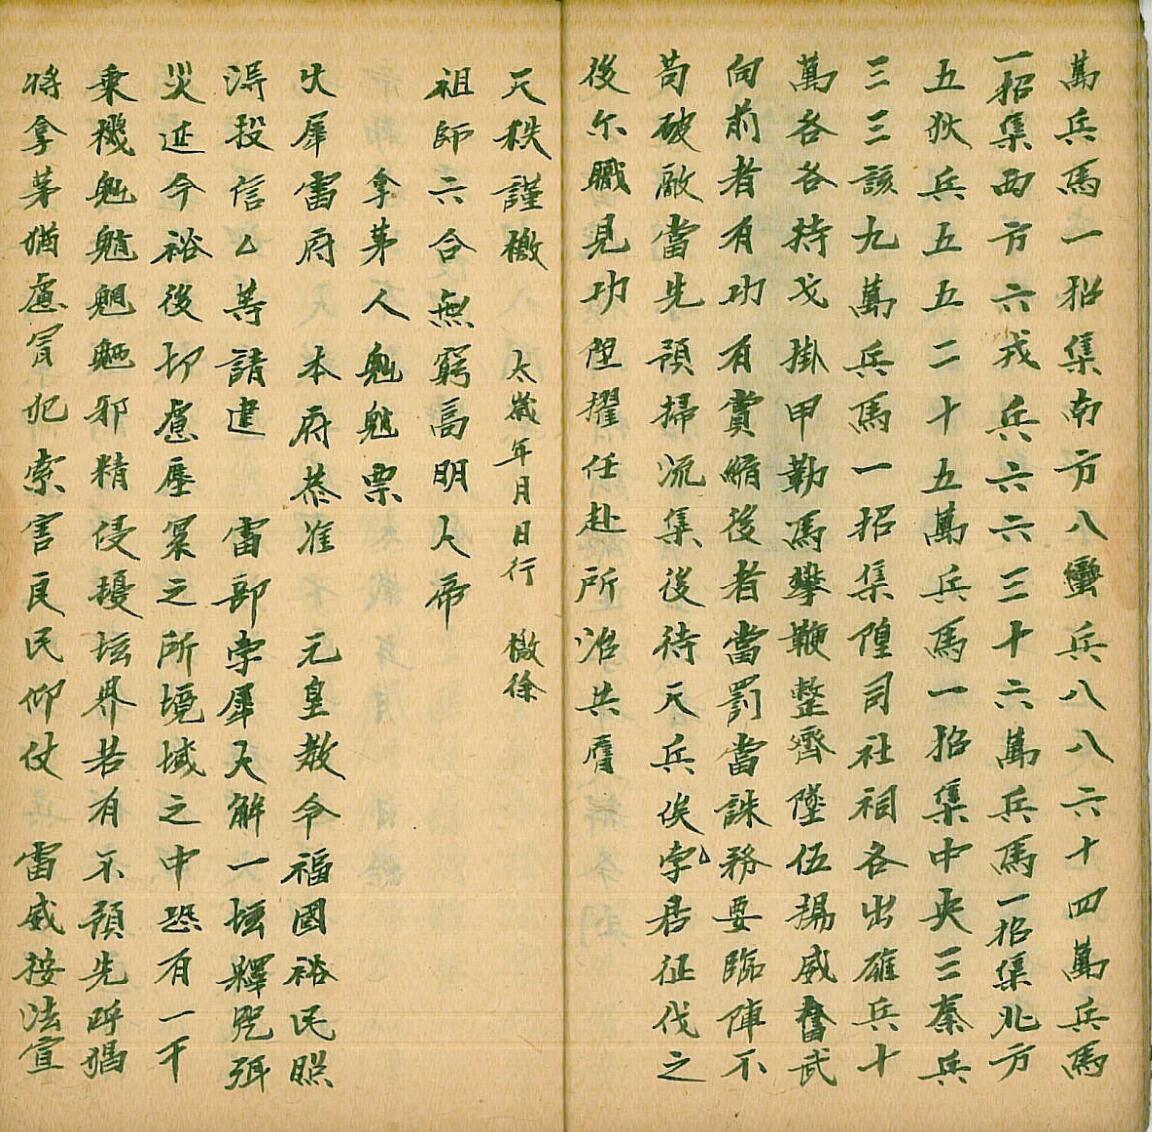 萬兵馬一招集南方八蠻兵八八六十四萬兵馬
一招集西方六戎兵六六三十六萬兵馬一招集北方
五狄兵五五二十五萬兵馬一招集中央三秦兵
三三該九萬兵馬一招集隍司社祠各出雄兵十
萬各各持戈掛甲勒馬攀鞭整齊隊伍揚威奮武
向前者有功有賞縮後者當罰當誅務要臨陣不
苟破敵當先領掃流集後待天兵俟孛君征伐之
後尔職見功陞擢任赴所治共膺
天秩謹檄 太歲年月日行 檄徐
祖師六合無窮高明人帝
拿茅人魁魁票
火犀雷府 本府恭准 元皇教令福國裕民照
淂投信厶等請建 雷部孛犀大解一壇釋咒弭
災迓今裕後切慮壓冪之所境域之中恐有一干
乘機邪精侵擾坛界若有不預先呼猖
將拿茅猶慮冒犯索害良民仰仗 雷威按法宣